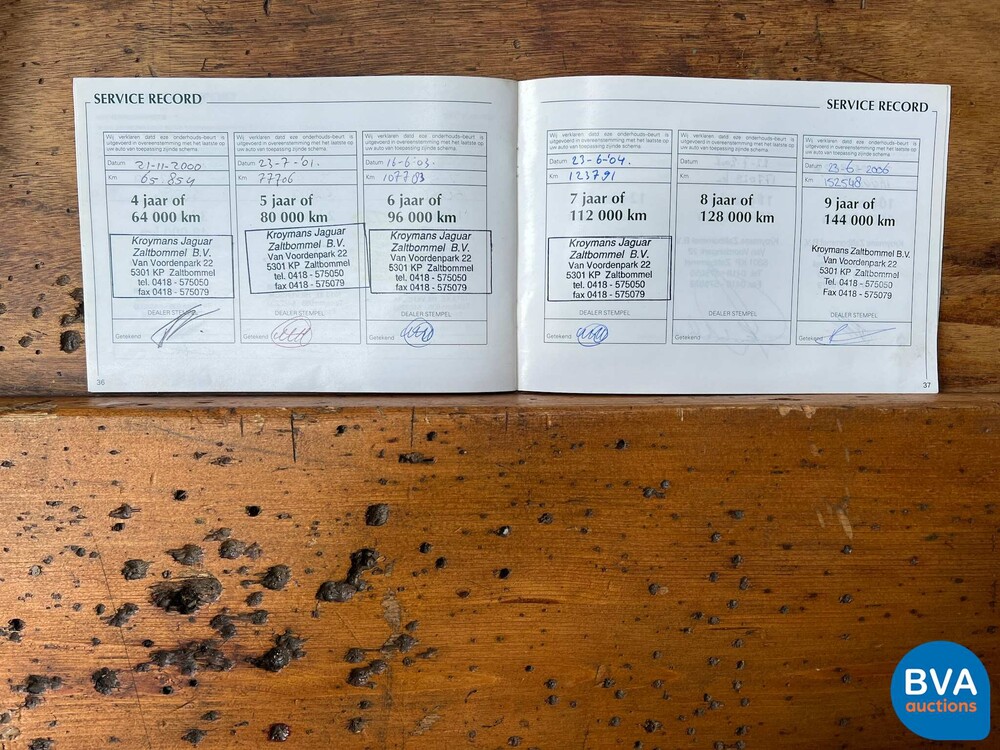 SERVICE RECORD
Wij verklaren datd eze onderhouds-beurt is
uitgevoerd in overeenstemming met het laatste op
uw auto van toepassing zijnde schema.
Datum 21-11-2000
Km 65.854
4 jaar of
64 000 km
Kroymans Jaguar
Zaltbommel B.V.
Van Voordenpark 22
5301 KP Zaltbommel
tel. 0418 - 575050
fax 0418 - 575079
DEALER STEMPEL
Getekend
36
Wij verklaren datd eze onderhouds-beurt is
uitgevoerd in overeenstemming met het laatste op
uw auto van toepassing zijnde schema.
Datum 23-7-'01.
Km 77706
5 jaar of
80 000 km
Kroymans Jaguar
Zaltbommel B.V.
Van Voordenpark 22
5301 KP Zaltbommel
tel. 0418 - 575050
fax 0418 - 575079
DEALER STEMPEL
Getekend
Wij verklaren datd eze onderhouds-beurt is
uitgevoerd in overeenstemming met het laatste op
uw auto van toepassing zijnde schema.
Datum 16-6-03.
Km 107703
6 jaar of
96 000 km
Kroymans Jaguar
Zaltbommel B.V.
Van Voordenpark 22
5301 KP Zaltbommel
tel. 0418 - 575050
fax 0418 - 575079
DEALER STEMPEL
Getekend
SERVICE RECORD
Wij verklaren datd eze onderhouds-beurt is
uitgevoerd in overeenstemming met het laatste op
uw auto van toepassing zijnde schema.
Datum 23-6-'04.
Km 123791
7 jaar of
112 000 km
Kroymans Jaguar
Zaltbommel B.V.
Van Voordenpark 22
5301 KP Zaltbommel
tel. 0418 - 575050
fax 0418 - 575079
DEALER STEMPEL
Getekend
Wij verklaren datd eze onderhouds-beurt is
uitgevoerd in overeenstemming met het laatste op
uw auto van toepassing zijnde schema.
Datum
Km
8 jaar of
128 000 km
DEALER STEMPEL
Getekend
Wij verklaren datd eze onderhouds-beurt is
uitgevoerd in overeenstemming met het laatste op
uw auto van toepassing zijnde schema.
Datum 23-6-2006
Km 152548
9 jaar of
144 000 km
Kroymans Zaltbommel B.V.
Van Voordenpark 22
5301 KP Zaltbommel
Tel. 0418 - 575050
Fax 0418 - 575079
DEALER STEMPEL
Getekend
37
BVA
auctions